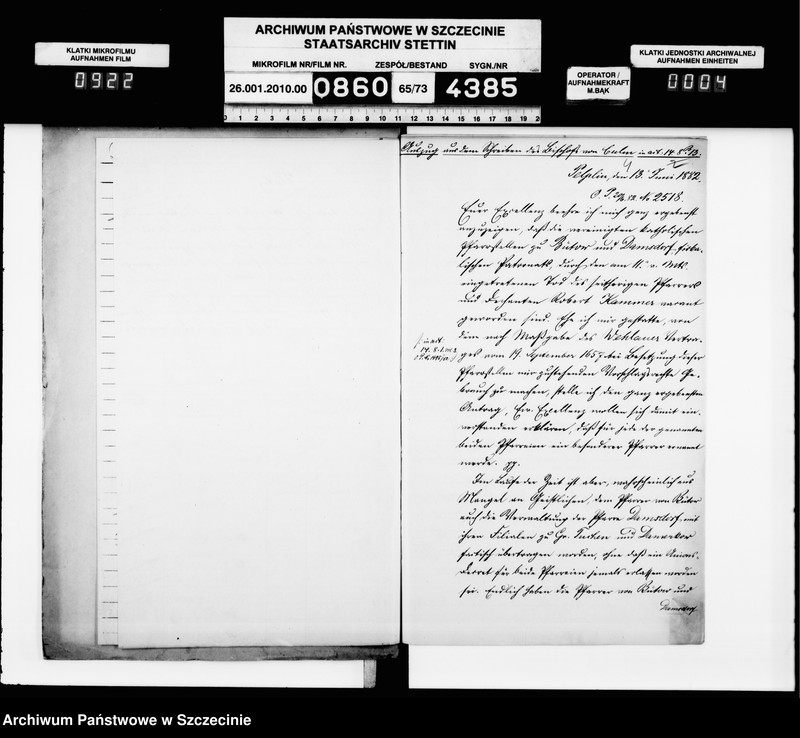 ARCHIWUM PAŃSTWOWE W SZCZECINIE
STAATSARCHIV STETTIN
KLATKI MIKROFILMU
AUFNAHMEN FILM
0922
MIKROFILM NR/FILM NR. ZESPÓŁ/BESTAND SYGN./NR
26.001.2010.00 0860 65/73 4385
OPERATOR/
AUFNAHMEKRAFT
M.BĄK
KLATKI JEDNOSTKI ARCHIWALNEJ
AUFNAHMEN EINHEITEN
0004
0 1 2 3 4 5 6 7 8 9 10 11 12 13 14 15 16 17 18 19 20
Auszug aus dem Schreiben des Bischofs von Culm in act. 14. 8.
Pelplin, den 13. Juni 1882.
O. P. No 2518.
Euer Excellenz beehre ich mich ganz ergebenst
anzuzeigen, daß die vereinigten katholischen
Pfarrstellen zu Bütow und Damsdorf, fiska-
lischen Patronats, durch den am 11. v. Mts.
eingetretenen Tod des seitherigen Pfarrers
und Dechanten Robert Kammer vacant
geworden sind. Ehe ich mir gestatte, von
dem nach Maßgabe des Wehlauer Vertra-
ges vom 19. September 1657 bei Besetzung dieser
Pfarrstellen mir zustehenden Vorschlagsrechte Ge-
brauch zu machen, stelle ich den ganz ergebensten
Antrag, Ew. Excellenz wollen sich damit ein-
verstanden erklären, daß für jede der genannten
beiden Pfarreien ein besonderer Pfarrer ernannt
werde. pp.
Im Laufe der Zeit ist aber, wahrscheinlich aus
Mangel an Geistlichen, dem Pfarrer von Bütow
auch die Verwaltung der Pfarre Damsdorf mit
ihren Filialen zu Gr. Tuchen und
factisch übertragen worden, ohne daß ein Unions-
Decret für beide Pfarreien jemals erlassen worden
sei. Endlich haben die Pfarrer von Bütow und
Damsdorf
Archiwum Państwowe w Szczecinie